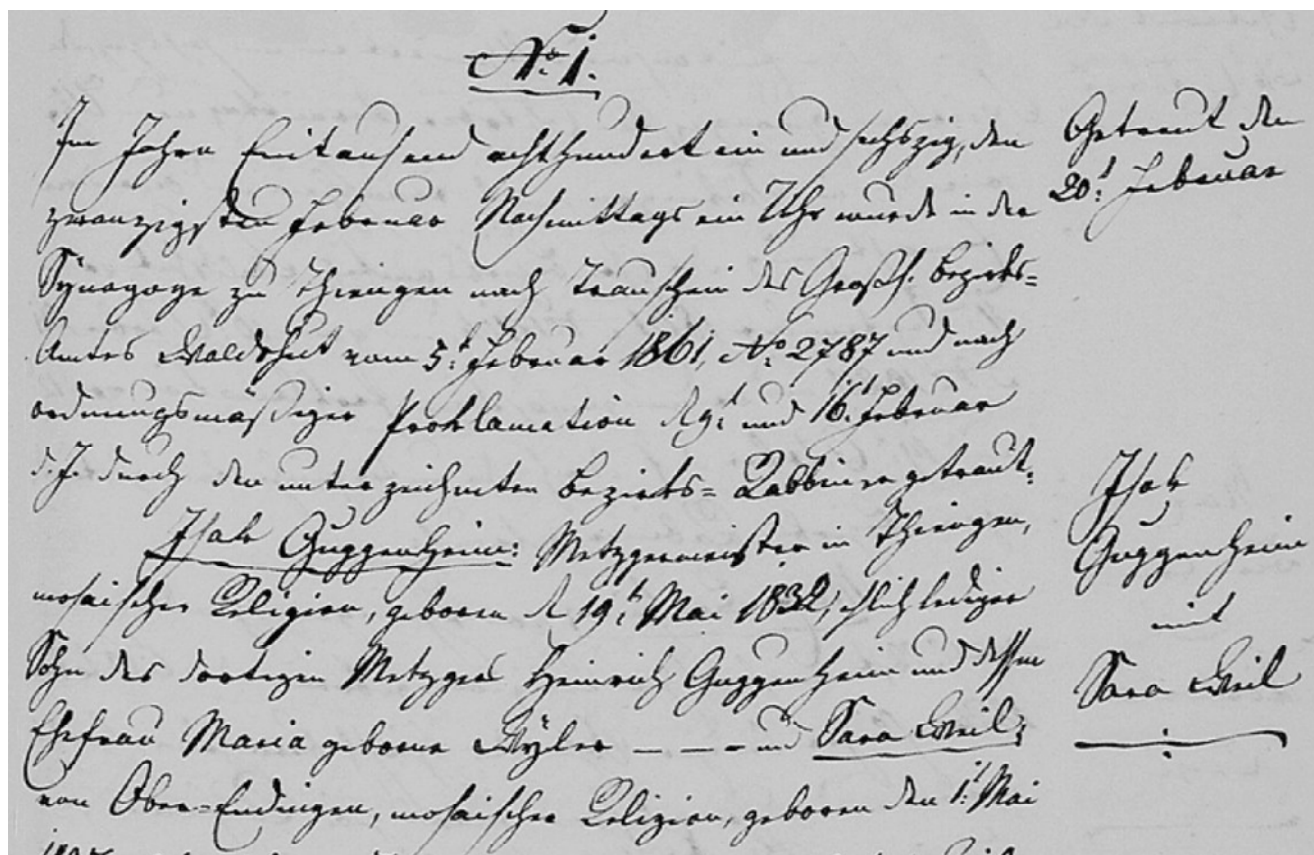 No. 1.
Im Jahre Eintausend achthundert ein und sechszig, den
zwanzigsten Februar Nachmittags ein Uhr wurde in der
Synagoge zu Thiengen nach Trauschein des Großh. Bezirks-
Amtes Waldshut vom 5t. Februar 1861, No. 2787 und nach
ordnungsmäßiger Proklamation d. 9t. und 16t. Februar
d. J. durch den unterzeichneten Bezirks-Rabbiner getraut:
Isak Guggenheim: Metzgermeister in Thiengen,
mosaischer Religion, geboren d. 19t. Mai 1832, ehlich lediger
Sohn des dortigen Metzgers Heinrich Guggenheim und dessen
Ehefrau Maria geborne Wyler — — — und Sara Weil;
von Ober-Endingen, mosaischer Religion, geboren den 1t. Mai
Getraut den
20t. Februar
Isak
Guggenheim
mit
Sara Weil